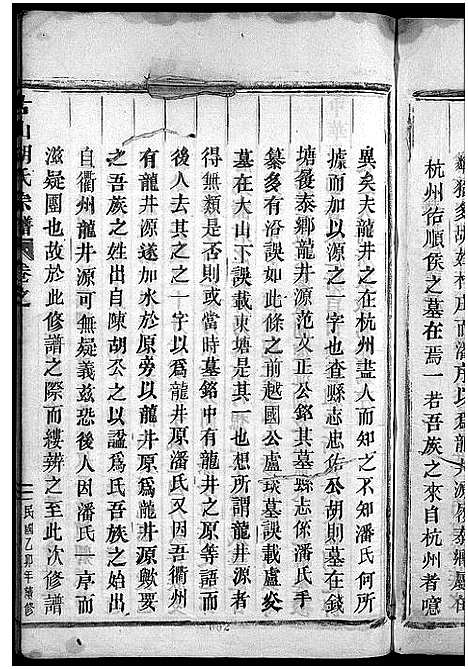 杭州佑順侯之墓在焉一若吾族之來自杭州者噫
異矣夫龍井之在杭州盡人而知之不知潘氏何所
據而加以源之一字也查縣志忠佑公胡則墓在錢
塘後泰鄉龍井源范文正公銘其墓縣志係潘氏手
纂多有沿誤如此條之前越國公盧琰誤載盧炎
墓在大山下誤載東塘是其一也想所謂龍井源者
得無類是否則或當時墓銘中有龍井之原潘氏
後人去其之之一字以爲龍井原潘氏又因吾衢州
有龍井源遂加水於原旁以龍井原爲龍井源歟要
之吾族之姓出自陳胡公之以諡爲氏吾族之始出
自衢州龍井源可無疑義茲恐後人因潘氏序而
滋疑團也故於此修譜之際而縷辨之至此次修譜
胡氏宗譜
卷之
民國乙卯年續修
662